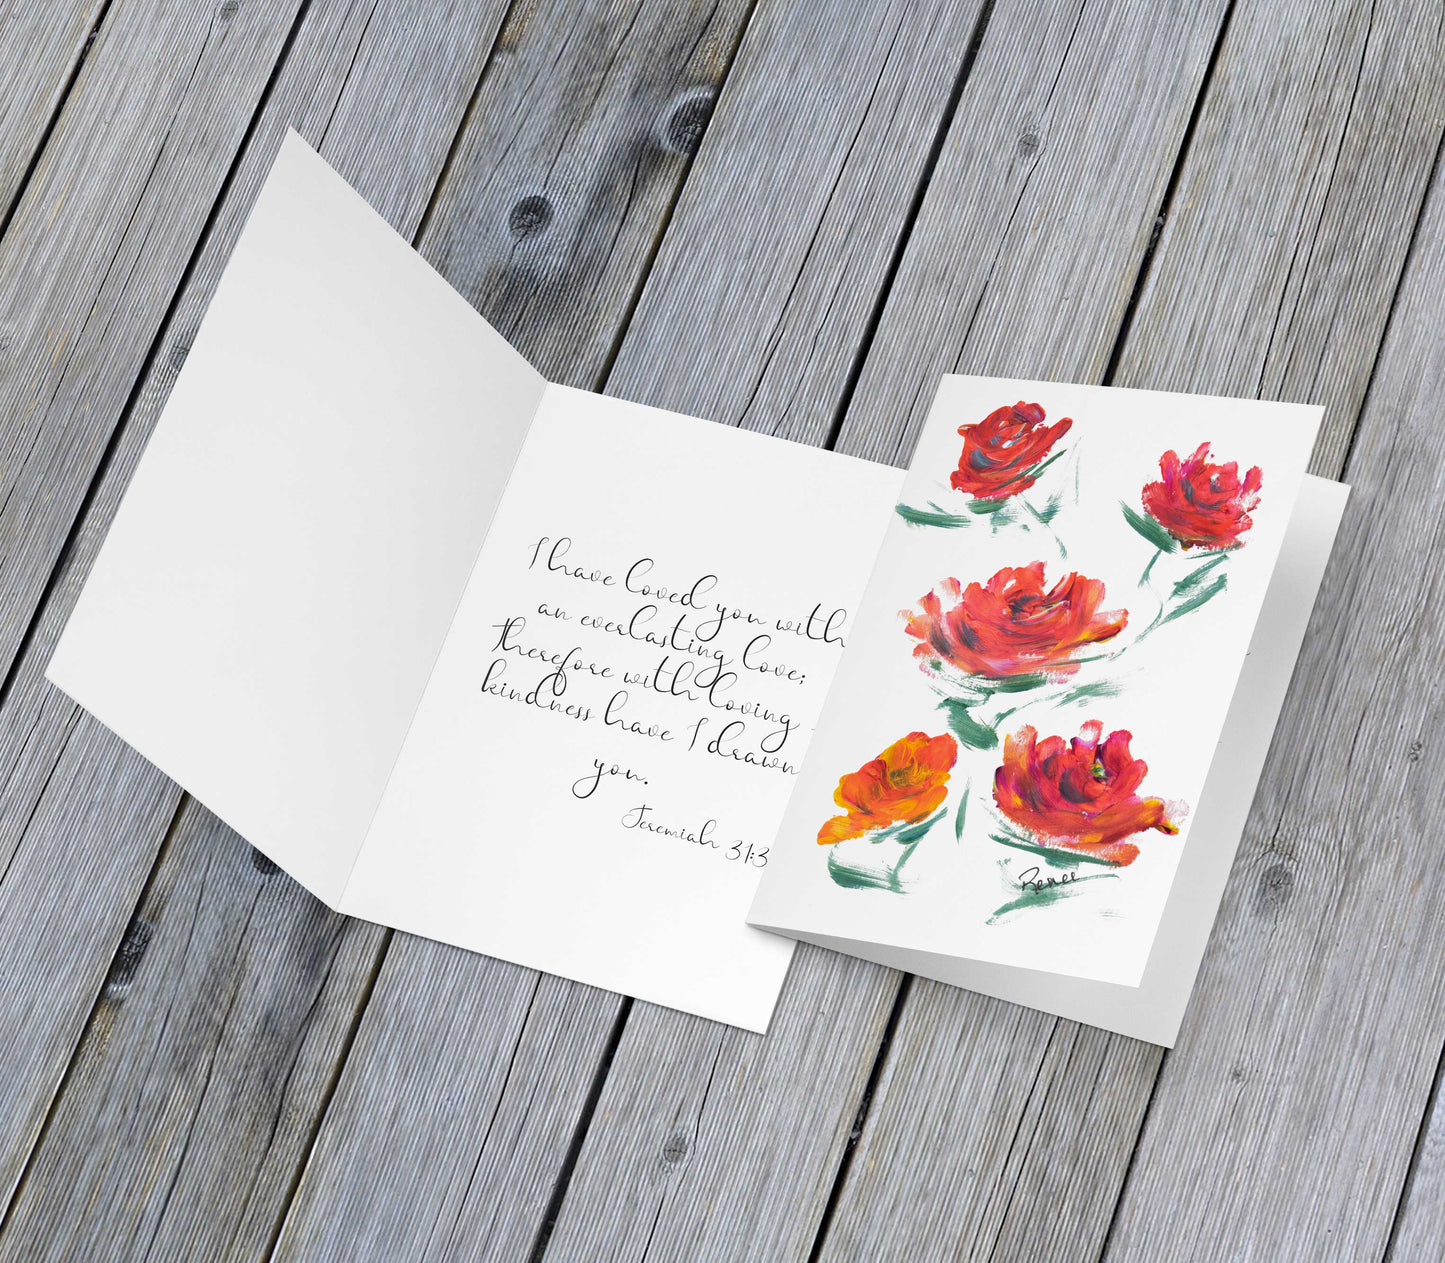 I have loved you with
an everlasting love;
therefore with loving
kindness have I drawn
you.
Jeremiah 31:3
Renee